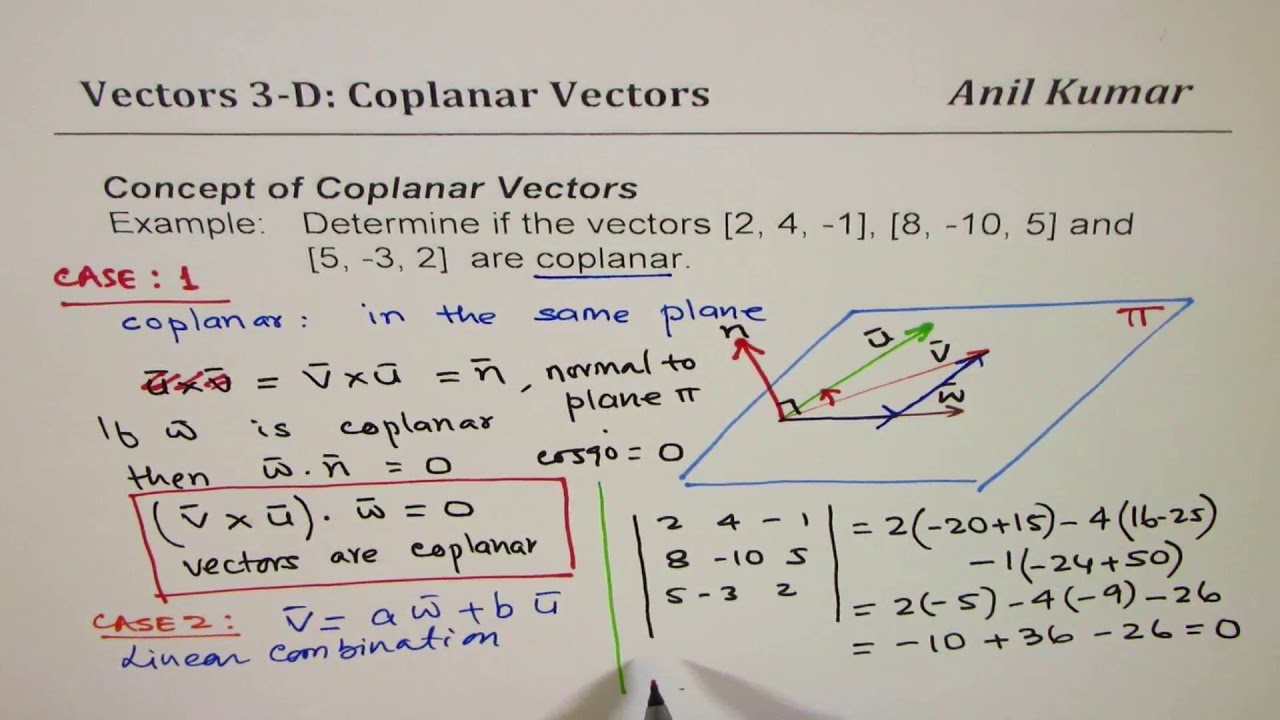 Vectors 3-D: Coplanar Vectors
Anil Kumar
Concept of Coplanar Vectors
Example: Determine if the vectors [2, 4, -1], [8, -10, 5] and
[5, -3, 2] are coplanar.
CASE: 1
coplanar: in the same plane
u̅×v̅ = v̅×u̅ = n̅, normal to
plane π
If w̅ is coplanar
then w̅.n̅ = 0
cos90 = 0
(v̅ × u̅). w̅ = 0
vectors are coplanar
CASE 2: v̅ = a w̅ + b u̅
Linear combination
n
u̅
v̅
w̅
π
| 2 4 -1 | = 2(-20+15) - 4(16-25)
8 -10 5 - 1(-24+50)
5 -3 2 = 2(-5) - 4(-9) - 26
= -10 + 36 - 26 = 0